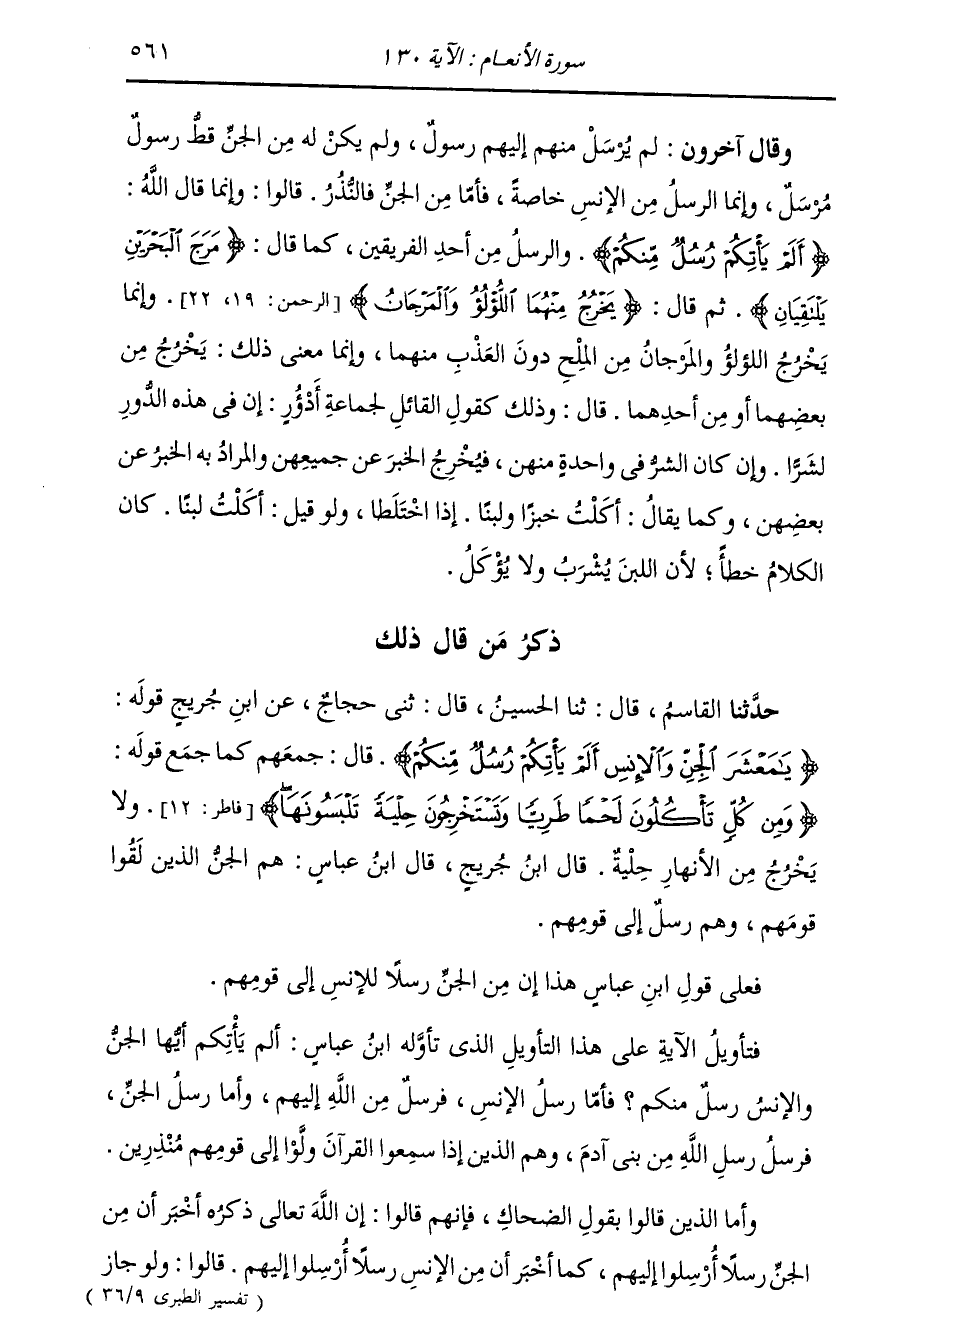 سورة الأنعام : الآية ١٣٠
٥٦١
وقال آخرون : لم يُرْسَلْ منهم إليهم رسولٌ ، ولم يكنْ له مِن الجنِّ قطُّ رسولٌ
مُرْسَلٌ ، وإنما الرسلُ مِن الإنسِ خاصةً ، فأمّا مِن الجنِّ فالنُّذُرُ . قالوا : وإنما قال اللَّهُ :
﴿ أَلَمْ يَأْتِكُمْ رُسُلٌ مِّنكُمْ﴾ . والرسلُ مِن أحدِ الفريقين ، كما قال : ﴿ مَرَجَ ٱلْبَحْرَيْنِ
يَلْتَقِيَانِ ﴾ . ثم قال : ﴿ يَخْرُجُ مِنْهُمَا ٱللُّؤْلُؤُ وَٱلْمَرْجَانُ ﴾ [الرحمن: ١٩، ٢٢] . وإنما
يَخْرُجُ اللؤلؤُ والمَرْجانُ مِن المِلْحِ دونَ العَذْبِ منهما ، وإنما معنى ذلك : يَخْرُجُ مِن
بعضِهما أو مِن أحدِهما . قال : وذلك كقولِ القائلِ لجماعةِ أَدْؤُرٍ : إن فى هذه الدُّورِ
لشَرًّا . وإن كان الشرُّ فى واحدةٍ منهن ، فيُخْرِجُ الخبرَ عن جميعِهن والمرادُ به الخبرُ عن
بعضِهن ، وكما يقالُ : أكَلْتُ خبزًا ولبنًا . إذا اخْتَلَطا ، ولو قيل : أكَلْتُ لبنًا . كان
الكلامُ خطأً ؛ لأن اللبنَ يُشْرَبُ ولا يُؤْكَلُ .
ذكرُ مَن قال ذلك
حدَّثنا القاسمُ ، قال : ثنا الحسينُ ، قال : ثنى حجاجٌ ، عن ابنِ جريجٍ قولَه :
﴿ يَـٰمَعْشَرَ ٱلْجِنِّ وَٱلْإِنسِ أَلَمْ يَأْتِكُمْ رُسُلٌ مِّنكُمْ﴾ . قال : جمعَهم كما جمَع قولَه :
﴿ وَمِن كُلٍّ تَأْكُلُونَ لَحْمًا طَرِيًّا وَتَسْتَخْرِجُونَ حِلْيَةً تَلْبَسُونَهَاۖ﴾ [فاطر: ١٢] . ولا
يَخْرُجُ مِن الأنهارِ حِلْيةٌ . قال ابنُ جُريجٍ ، قال ابنُ عباسٍ : هم الجنُّ الذين لَقُوا
قومَهم ، وهم رسلٌ إلى قومِهم .
فعلى قولِ ابنِ عباسٍ هذا إن مِن الجنِّ رسلًا للإنسِ إلى قومِهم .
فتأويلُ الآيةِ على هذا التأويلِ الذى تأوَّله ابنُ عباسٍ : ألم يَأْتِكم أيُّها الجنُّ
والإنسُ رسلٌ منكم ؟ فأمّا رسلُ الإنسِ ، فرسلٌ مِن اللَّهِ إليهم ، وأما رسلُ الجنِّ ،
فرسلُ رسلِ اللَّهِ مِن بنى آدمَ ، وهم الذين إذا سمِعوا القرآنَ ولَّوْا إلى قومِهم مُنْذِرِين .
وأما الذين قالوا بقولِ الضحاكِ ، فإنهم قالوا : إن اللَّهَ تعالى ذكرُه أخْبَر أن مِن
الجنِّ رسلًا أُرْسِلوا إليهم ، كما أخْبَر أن مِن الإنسِ رسلًا أُرْسِلوا إليهم . قالوا : ولو جاز
( تفسير الطبرى ٣٦/٩ )